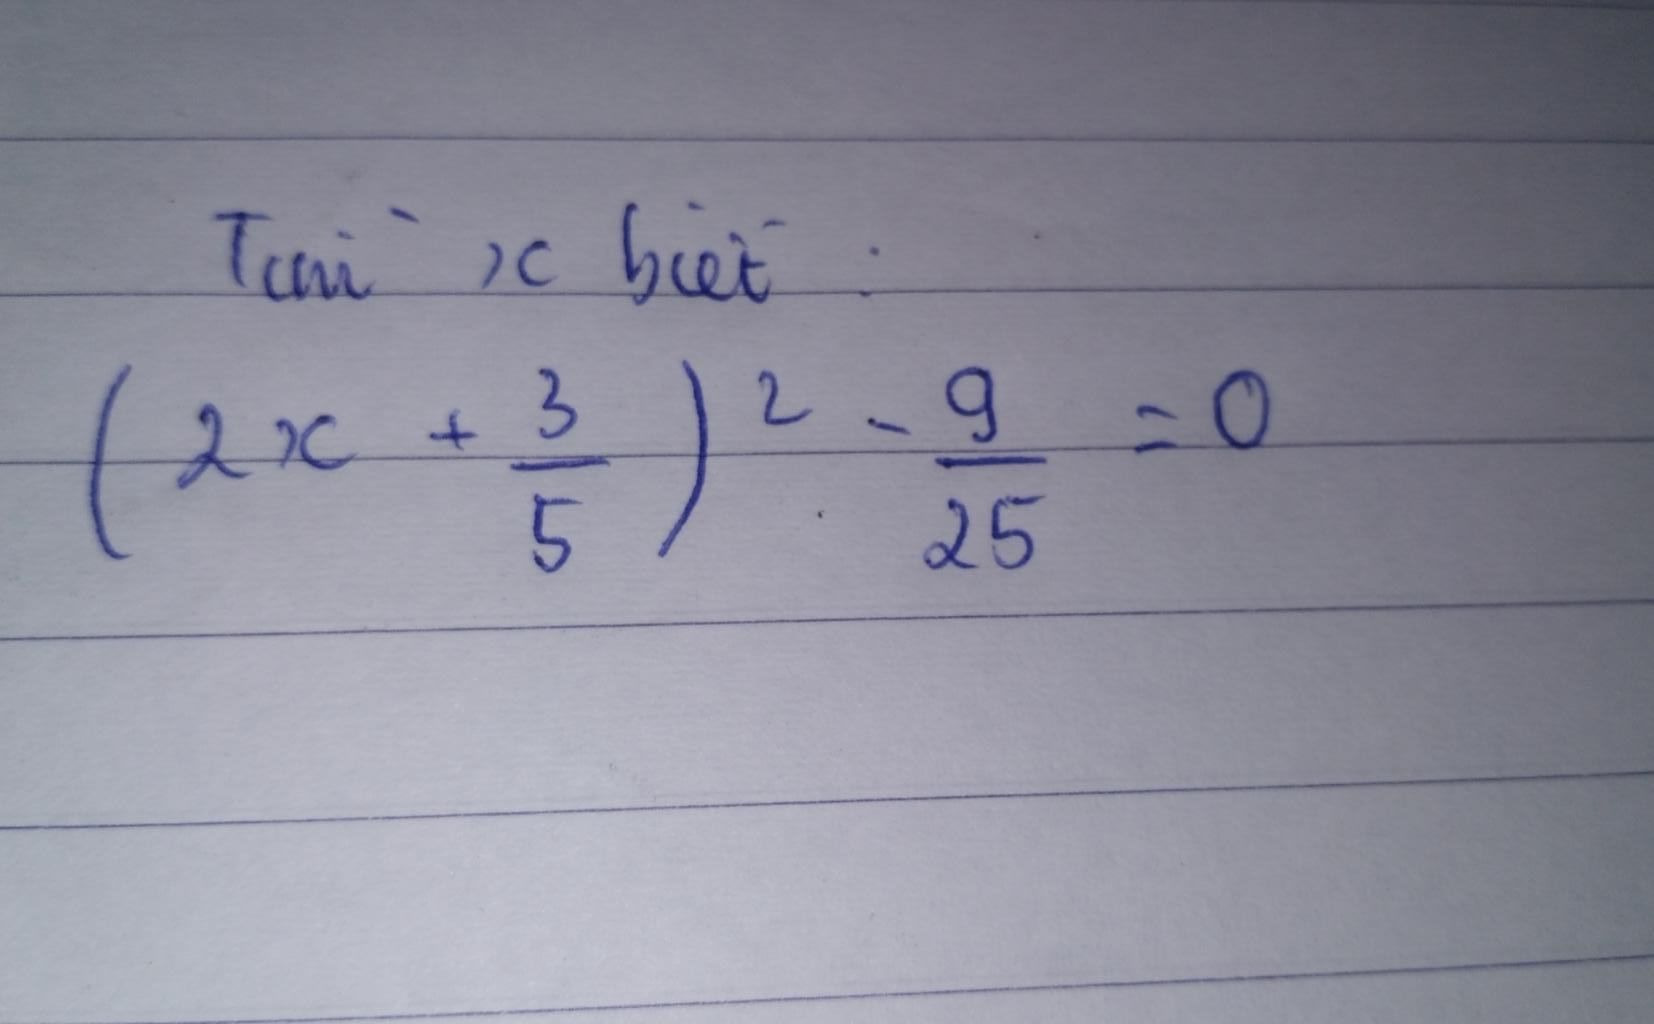 Tìm x biết :
(2x + 3/5)² - 9/25 = 0